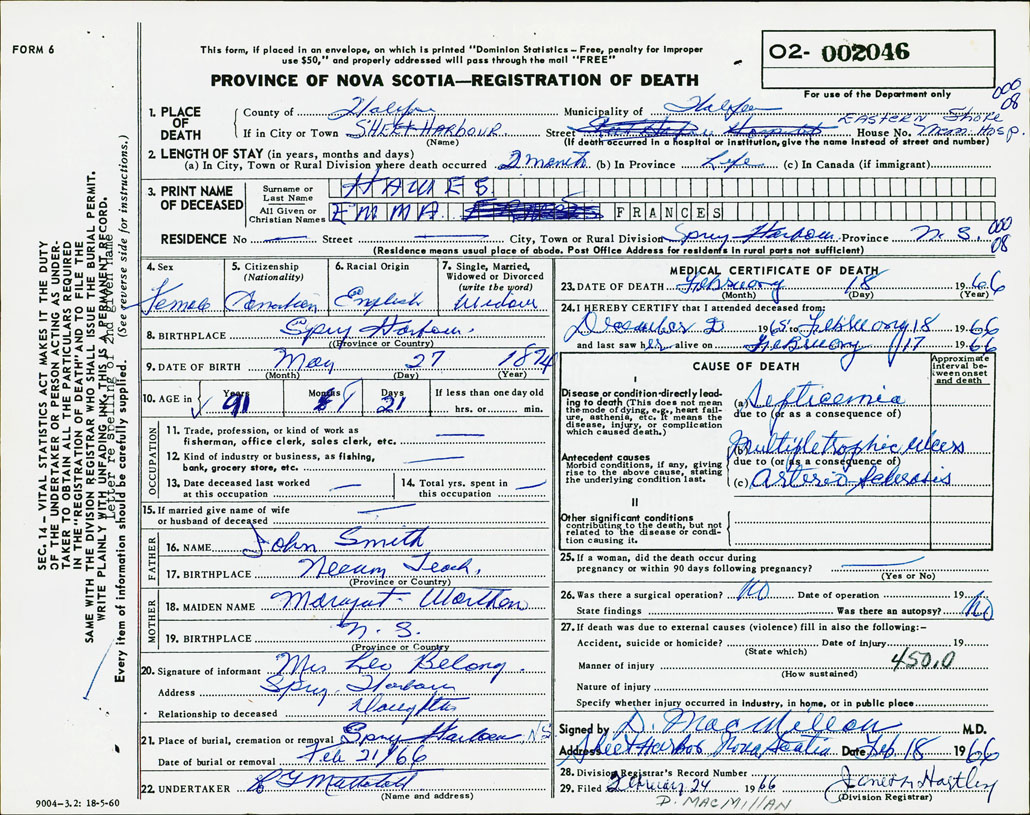 FORM 6
This form, if placed in an envelope, on which is printed "Dominion Statistics – Free, penalty for improper
use $50," and properly addressed will pass through the mail "FREE"
PROVINCE OF NOVA SCOTIA—REGISTRATION OF DEATH
O2- 002046
For use of the Department only
000
08
1. PLACE OF DEATH
County of Halifax Municipality of Halifax
EASTERN SHORE
If in City or Town SHEET HARBOUR Street House No. Mem Hosp.
(Name) (If death occurred in a hospital or institution, give the name instead of street and number)
2. LENGTH OF STAY (in years, months and days)
(a) In City, Town or Rural Division where death occurred 2 month (b) In Province Life (c) In Canada (if immigrant)
3. PRINT NAME OF DECEASED
Surname or Last Name HAWES
All Given or Christian Names EMMA FRANCES
RESIDENCE No — Street — City, Town or Rural Division Spry Harbour Province N. S.
000
08
(Residence means usual place of abode. Post Office Address for residents in rural parts not sufficient)
SEC. 14 – VITAL STATISTICS ACT MAKES IT THE DUTY
OF THE UNDERTAKER OR PERSON ACTING AS UNDER-
TAKER TO OBTAIN ALL THE PARTICULARS REQUIRED
IN THE "REGISTRATION OF DEATH" AND TO FILE THE
SAME WITH THE DIVISION REGISTRAR WHO SHALL ISSUE THE BURIAL PERMIT.
WRITE PLAINLY WITH UNFADING INK, THIS IS A PERMANENT RECORD.
Letter re spelling of 2nd given name
Every item of information should be carefully supplied. (See reverse side for instructions.)
4. Sex Female
5. Citizenship (Nationality) Canadian
6. Racial Origin English
7. Single, Married, Widowed or Divorced (write the word) Widow
8. BIRTHPLACE Spry Harbour
(Province or Country)
9. DATE OF BIRTH May 27 1874
(Month) (Day) (Year)
10. AGE in Years 91 Months Days 21 If less than one day old
hrs. or min.
OCCUPATION
11. Trade, profession, or kind of work as
fisherman, office clerk, sales clerk, etc. —
12. Kind of industry or business, as fishing,
bank, grocery store, etc. —
13. Date deceased last worked at this occupation —
14. Total yrs. spent in this occupation —
15. If married give name of wife
or husband of deceased —
FATHER
16. NAME John Smith
17. BIRTHPLACE Neeum Teach,
(Province or Country)
MOTHER
18. MAIDEN NAME
19. BIRTHPLACE N. S.
(Province or Country)
20. Signature of informant Mrs Leo Belong.
Address Spry Harbour
Relationship to deceased Daughter
21. Place of burial, cremation or removal Spry Harbour, NS
Date of burial or removal Feb 21/66
22. UNDERTAKER
(Name and address)
9004-3.2: 18-5-60
MEDICAL CERTIFICATE OF DEATH
23. DATE OF DEATH February 18 1966
(Month) (Day) (Year)
24. I HEREBY CERTIFY that I attended deceased from
December 2 1965 to February 18 1966
and last saw her alive on February 17 1966
CAUSE OF DEATH
Approximate interval between onset and death
I
Disease or condition directly leading to death (This does not mean the mode of dying, e.g., heart failure, asthenia, etc. It means the disease, injury, or complication which caused death.)
(a) Septicemia
due to (or as a consequence of)
Antecedent causes
Morbid conditions, if any, giving rise to the above cause, stating the underlying condition last.
(b) Multiple trophic ulcers
due to (or as a consequence of)
(c) Arterio Sclerosis
II
Other significant conditions
contributing to the death, but not related to the disease or condition causing it.
25. If a woman, did the death occur during
pregnancy or within 90 days following pregnancy? —
(Yes or No)
26. Was there a surgical operation? No Date of operation 19
State findings Was there an autopsy? No
27. If death was due to external causes (violence) fill in also the following:–
Accident, suicide or homicide? Date of injury 19
(State which)
450.0
Manner of injury
(How sustained)
Nature of injury
Specify whether injury occurred in industry, in home, or in public place
Signed by D. MacMillan M.D.
Address Sheet Harbor Nova Scotia Date Feb. 18 1966
28. Division Registrar's Record Number
29. Filed February 24 1966 Janet M Hartley
(Division Registrar)
D. MACMILLAN